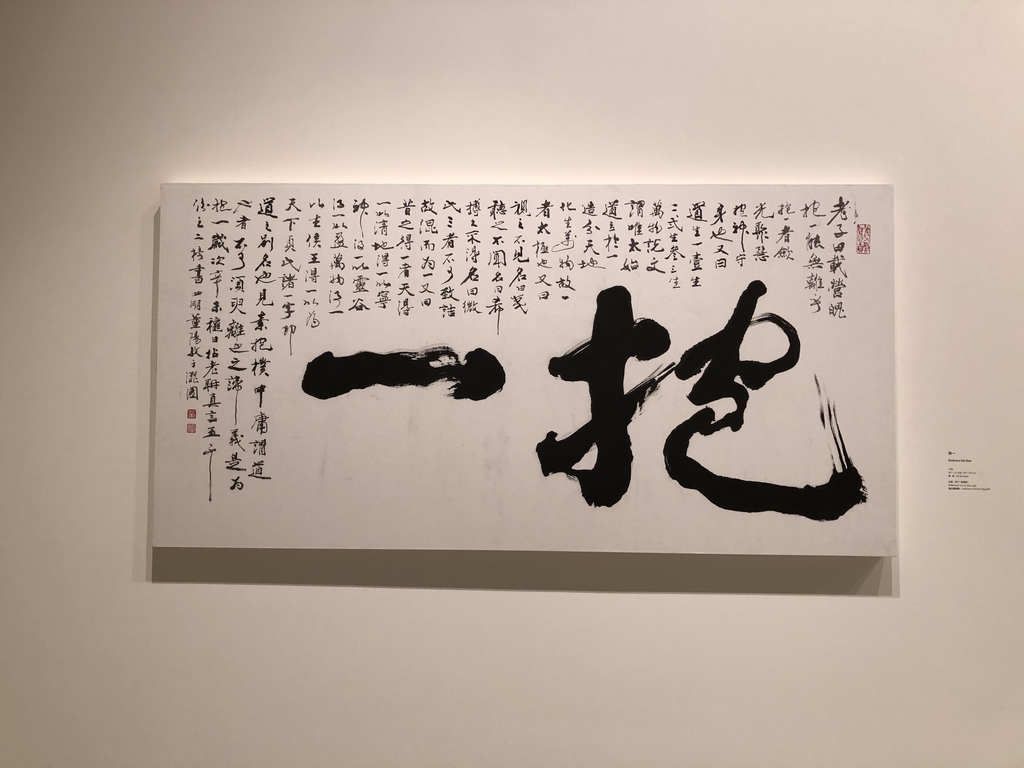 抱一
老子曰載營魄
抱一能無離乎
抱一者歛
光聚慧
抱神守
身也又曰
道生一壹生
二弍生叄三生
萬物說文
謂唯太始
道立於一
造分天地
化生萬物故一
者太極也又曰
視之不見名曰夷
聽之不聞名曰希
搏之不得名曰微
此三者不可致詰
故混而為一又曰
昔之得一者天得
一以清地得一以寧
神得一以靈谷
得一以盈萬物得一
以生侯王得一以為
天下貞此諸一字即
道之別名也見素抱樸中庸謂道
也者不可須臾離也之諦義是為
抱一歲次辛未日拈老聃真言五千
之書
抱一